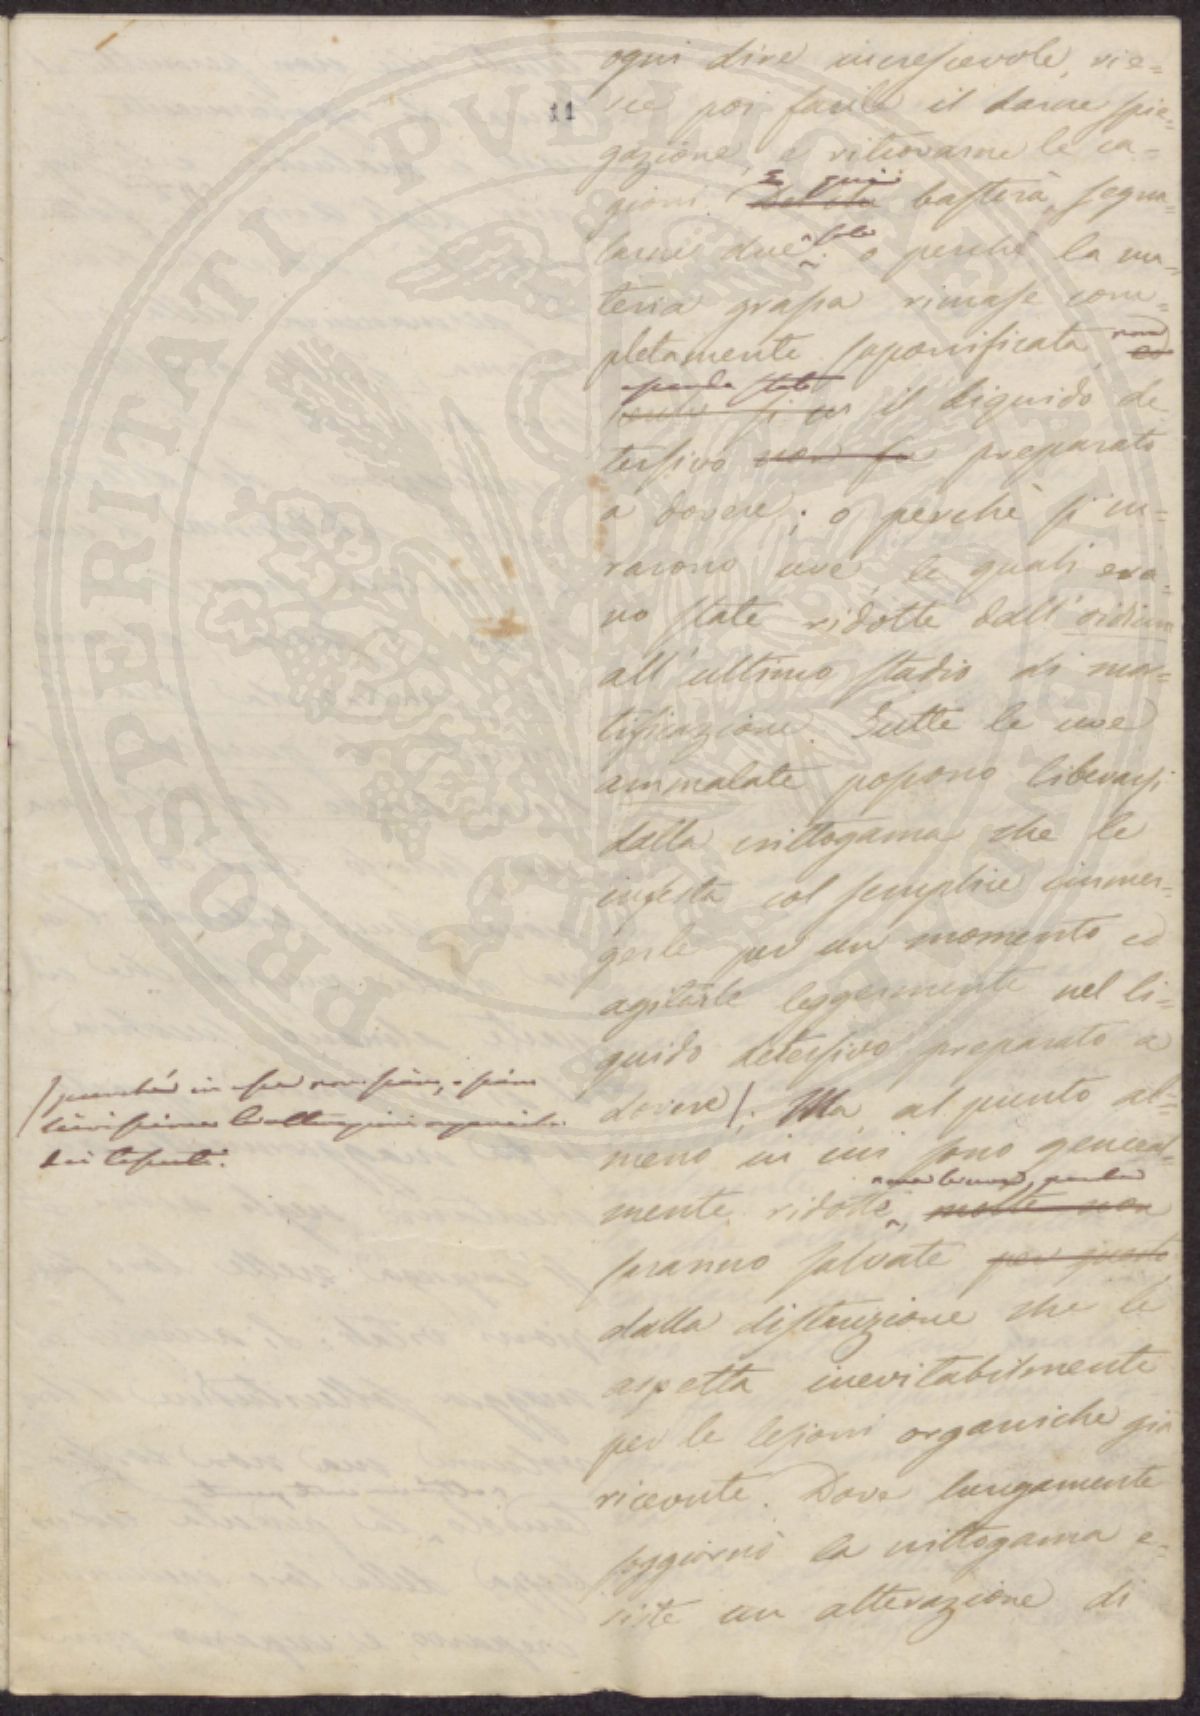 11
ogni dire increscevole, vie=
ne poi facile il darne spie=
gazione, e ritrovarne le ca=
gioni. E qui basterà segna=
larne due sole: o perchè la ma=
teria grassa rimase com=
pletamente saponificata, non
essendo stato il liquido de
tersivo non fu preparato
a dovere; o perchè si cu=
rarono uve, le quali era=
no state ridotte dall'oidium
all'ultimo stadio di mor=
tificazione. Tutte le uve
ammalate possono liberarsi
dalla crittogama che le
infesta col semplice immer=
gerle per un momento ed
agitarle leggermente nel li=
quido detersivo preparato a
dovere/. Ma, al punto al=
meno in cui sono general=
mente ridotte, molte non
saranno salvate per questo
dalla distruzione che le
aspetta inevitabilmente
per le lesioni organiche già
ricevute. Dove lungamente
soggiornò la crittogama e=
siste un alterazione di
/purchè in esse non siano, o siano
lievissime le alterazioni organiche
dei tessuti.
PROSPERITATI PVBLICAE